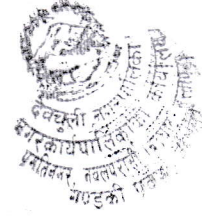 देवचुली नगरपालिका
नगरकार्यपालिकाको कार्यालय
प्रगतिनगर नवलपरासी
गण्डकी प्रदेश